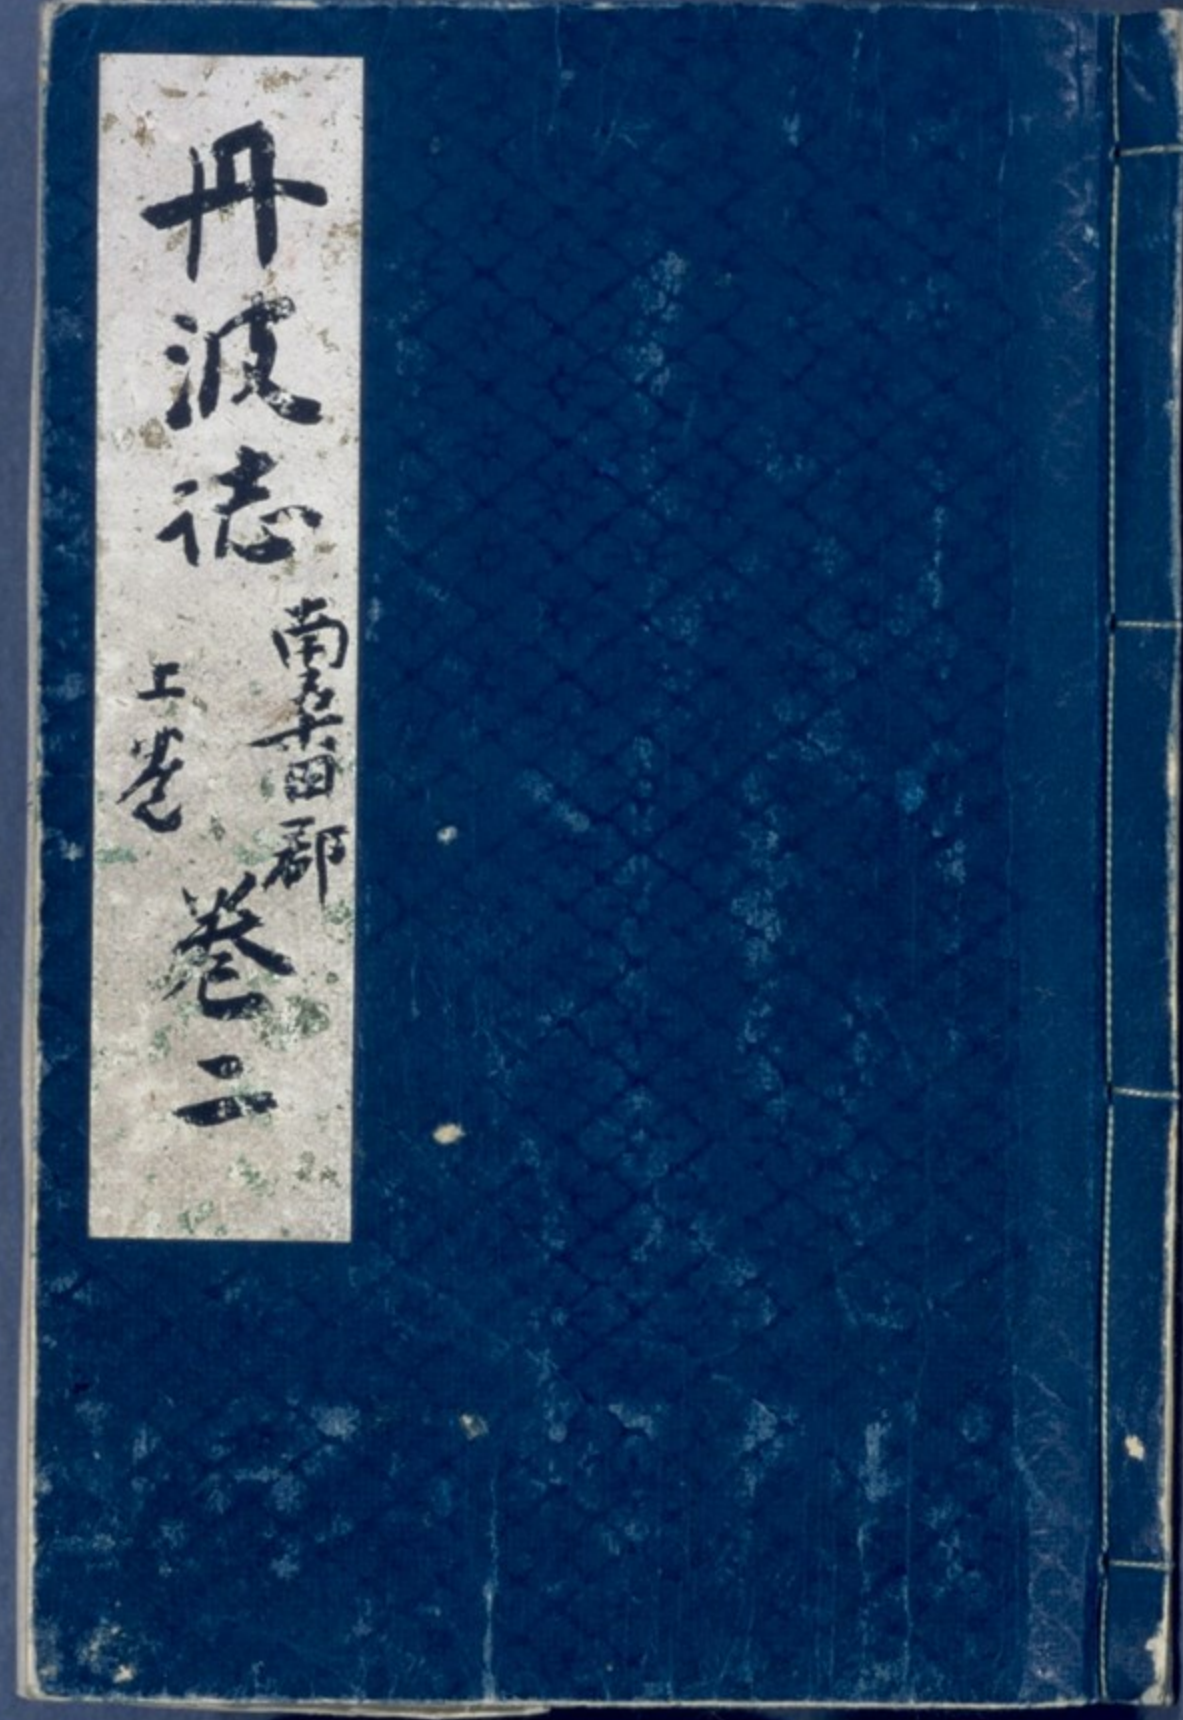 丹波志
南桑田郡
上巻
巻二